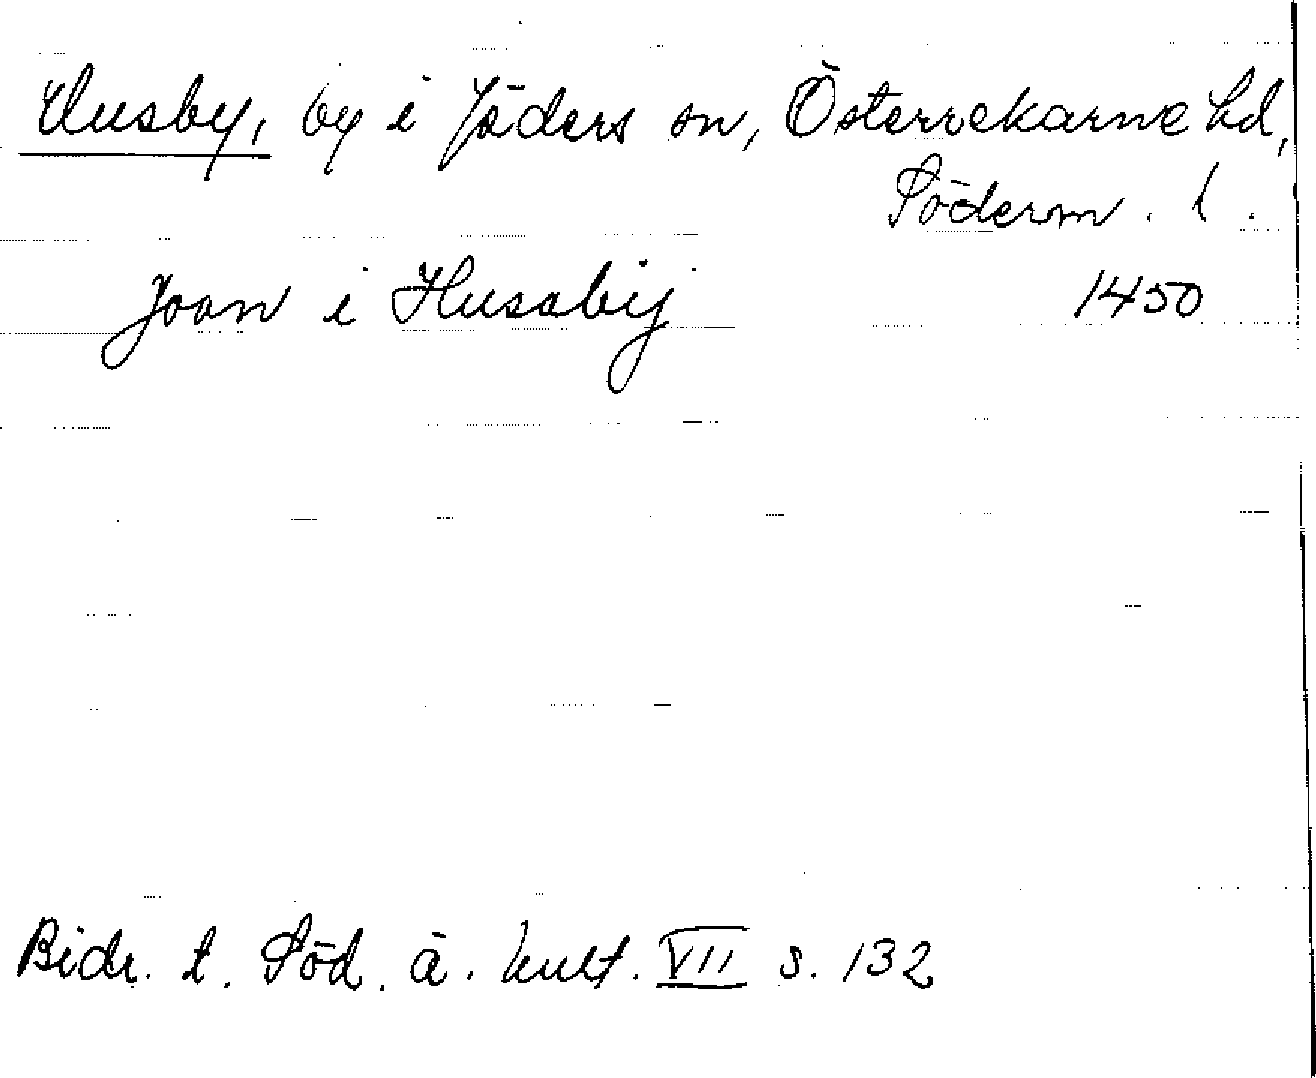 Husby, by i Jäders sn, Österrekarne hd,
Söderm. l.
Joan i Hussbij 1450
Bidr. t. Söd. ä. kult. VII s. 132